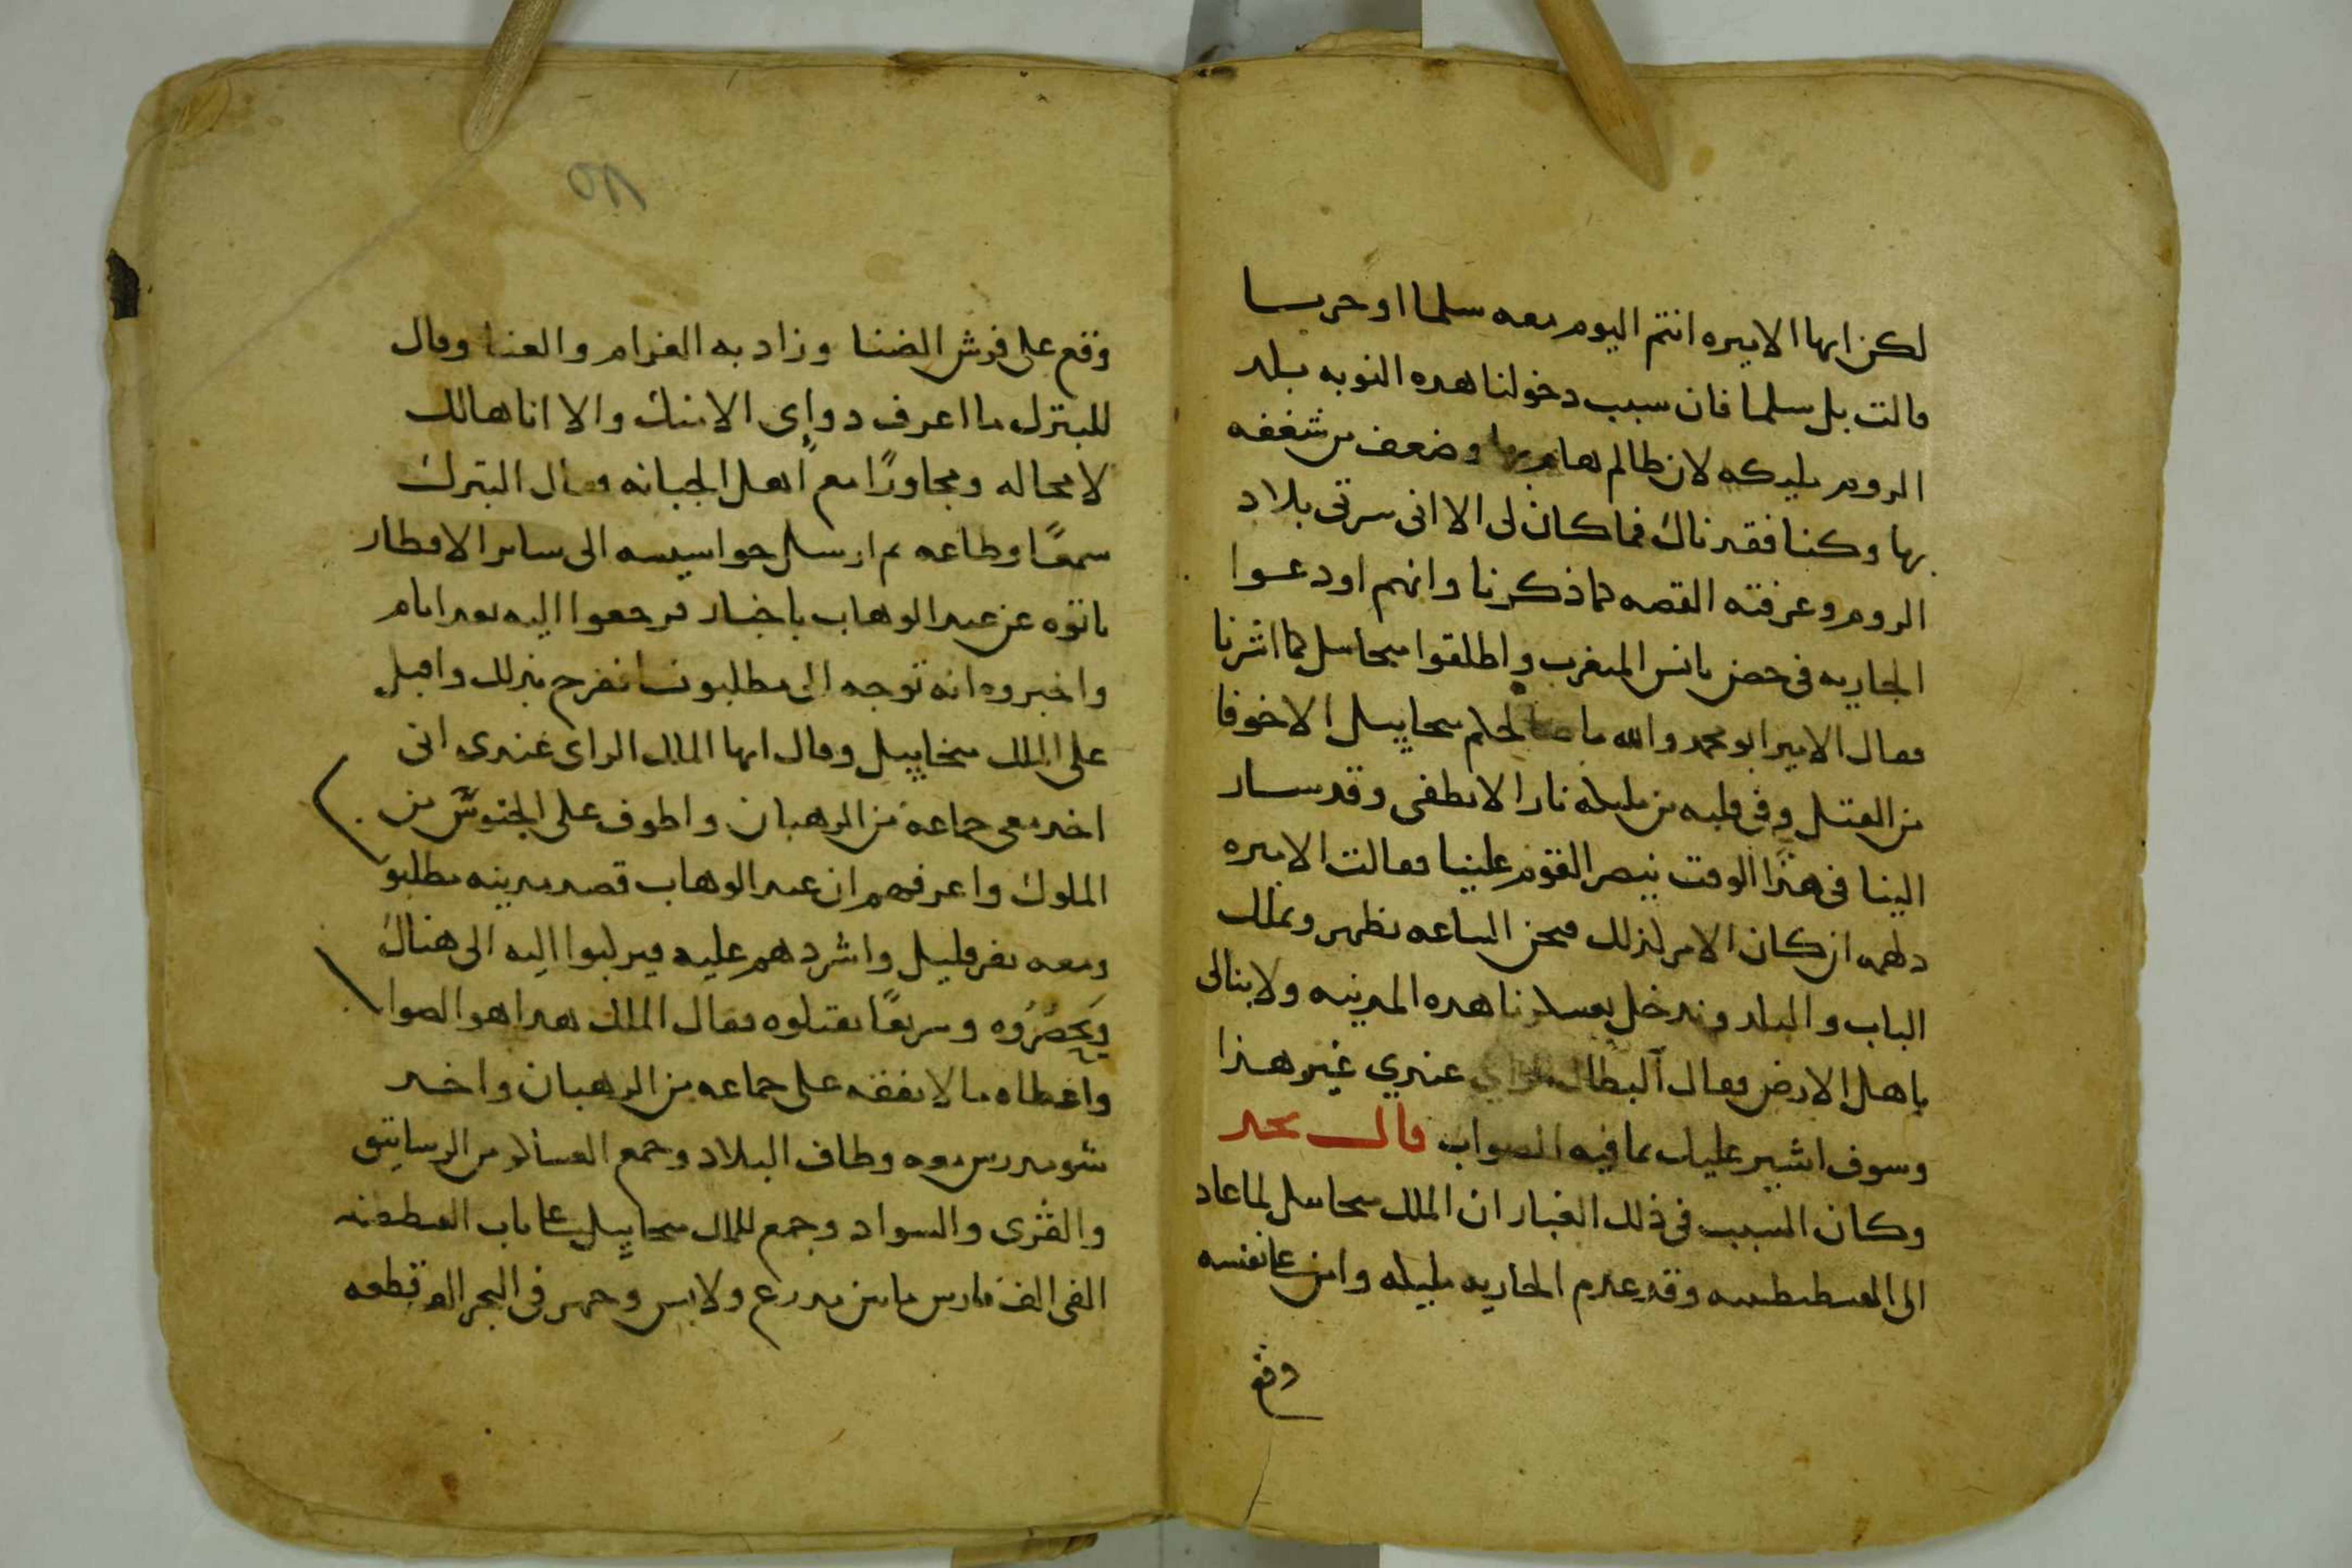 لكن ايها الاميره انتم اليوم معه سلما او حربا
قالت بل سلما فان سبب دخولنا هده النوبه بلد
الروم بليكه لان ظالم هام بها وضعف من شغفه
بها وكنا فقدناك فما كان لى الا انى سرتى بلاد
الروم وعرفته القصه كما ذكرنا وانهم اودعوا
الجاريه فى حصن يانس المتغرب واطلقوا ميخاييل كما اشرنا
فقال الامير ابو محمد والله ما ميخاييل الا خوفا
من القتل وفى قلبه من مليله نارا لا تطفى وقد سار
الينا فى هذا الوقت ينصر القوم علينا فقالت الاميره
دلهمه ان كان الامر لذلك فنحن الساعه نظهر ونملك
الباب والبلد وندخل بعسكرنا هده المدينه ولا نبالى
باهل الارض فقال البطال الراي عندي غير هذا
وسوف اشير عليك بما فيه الصواب قال نجد
وكان السبب فى ذلك الغبار ان الملك ميخاييل لما عاد
الى القسطنطينيه وقد عدم الجاريه مليله وامن على نفسه
وقع
٨٥
وقع على فرش الضنا وزاد به الغرام والعنا وقال
للبترك ما اعرف دواى الا منك والا انا هالك
لا محاله ومجاورًا مع اهل الجبانه فقال البترك
سمعًا وطاعه ثم ارسل جواسيسه الى ساير الاقطار
ياتوه عن عبد الوهاب باخبار فرجعوا اليه بعد ايام
واخبروه انه توجه الى مطلبونسا ففرح بذلك واقبل
على الملك ميخاييل وقال ايها الملك الراى عندى انى
اخد معى جماعه من الرهبان واطوف على الجيوش من
الملوك واعرفهم ان عبد الوهاب قصد مدينه مطلبو
ومعه نفر قليل واشردهم عليه فيركبوا اليه الى هناك
ويحصُرُوه وسريعًا يقتلوه فقال الملك هدا هو الصوا
واعطاه مالا نفقه على جماعه من الرهبان واخد
شومدرس معه وطاف البلاد وجمع العساكر من الرساتيق
والقرى والسواد وجمع للملك ميخاييل على باب القسطنطنيه
الفى الف فارس ما بين مدرع ولابس وجهز فى البحر الف قطعه